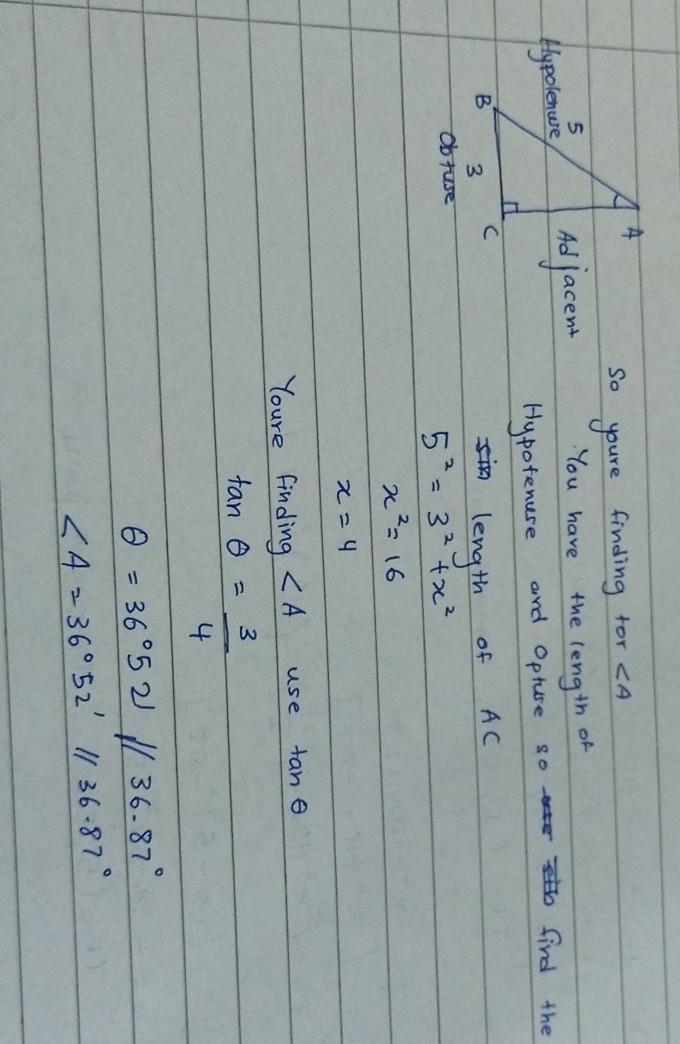 A
5
Hypotenuse
Adjacent
B
C
3
Obtuse
So youre finding for <A
You have the length of
Hypotenuse and Opture so find the
length of AC
5² = 3² + x²
x² = 16
x = 4
Youre finding <A use tan θ
tan θ = 3
4
θ = 36°52' // 36.87°
<A = 36°52' // 36.87°